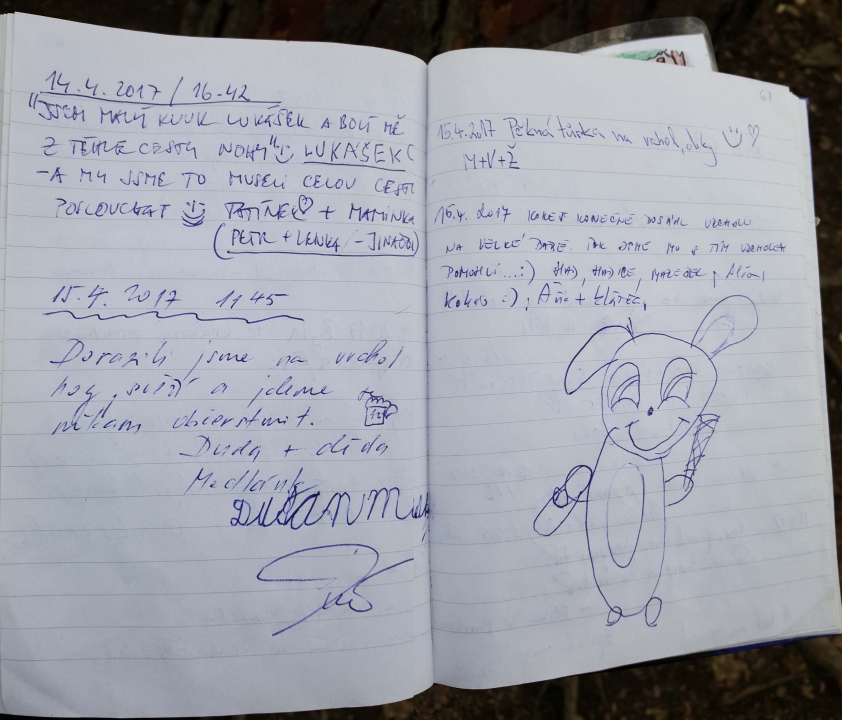 14.4.2017 / 16.42
"JSEM MALÝ KLUK LUKÁŠEK A BOLÍ MĚ
Z TÉHLE CESTY NOHY" LUKÁŠEK
-A MY JSME TO MUSELI CELOU CESTU
POSLOUCHAT TATÍNEK + MAMINKA
(PETR + LENKA - JINAČOVI)
15.4. 2017 1145
Dorazili jsme na vrchol
hory, svítí a jdeme
někam občerstvit.
Duda + děda
Medlánk
DUŠAN
67
15.4.2017 Pěkná túrka na vrchol, díky
M+V+Ž
16.4. 2017 KOKES KONEČNĚ DOSÁHL VRCHOLU
NA VELKÉ BABĚ. TAK JSME MU S TÍM VRCHOLEM
POMOHLI...:) HAD, HADICE, MAZEČEK,
Kokes :), Áňa +